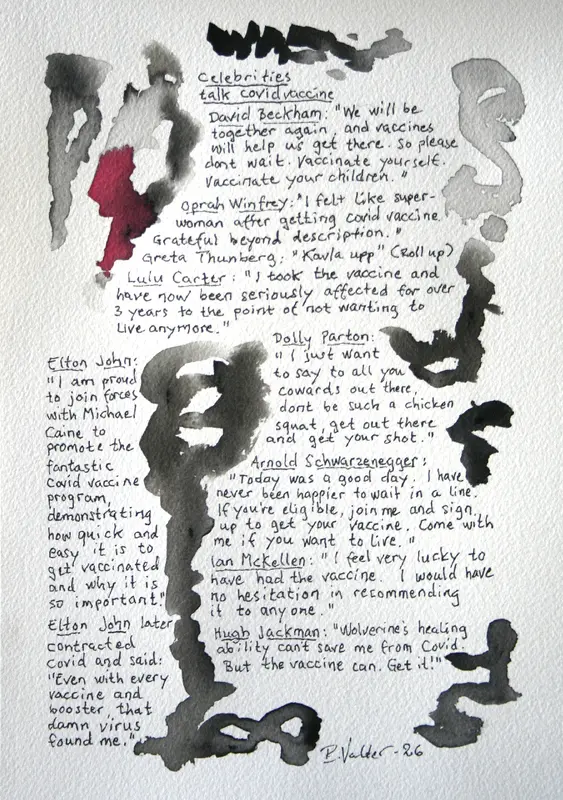 Celebrities
talk covid vaccine
David Beckham: "We will be
together again, and vaccines
will help us get there. So please
dont wait. Vaccinate yourself.
Vaccinate your children."
Oprah Winfrey: "I felt like super-
woman after getting covid vaccine.
Grateful beyond description."
Greta Thunberg: "Kavla upp" (Roll up)
Lulu Carter: "I took the vaccine and
have now been seriously affected for over
3 years to the point of not wanting to
live anymore."
Dolly Parton:
"I just want
to say to all you
cowards out there,
dont be such a chicken
squat, get out there
and get your shot."
Elton John:
"I am proud
to join forces
with Michael
Caine to
promote the
fantastic
Covid vaccine
program,
demonstrating
how quick and
easy it is to
get vaccinated
and why it is
so important."
Elton John later
contracted
covid and said:
"Even with every
vaccine and
booster, that
damn virus
found me."
Arnold Schwarzenegger:
"Today was a good day. I have
never been happier to wait in a line.
If you're eligible, join me and sign
up to get your vaccine. Come with
me if you want to live."
Ian McKellen: "I feel very lucky to
have had the vaccine. I would have
no hesitation in recommending
it to anyone."
Hugh Jackman: "Wolverine's healing
ability can't save me from Covid.
But the vaccine can. Get it!"
B. Valter - 26